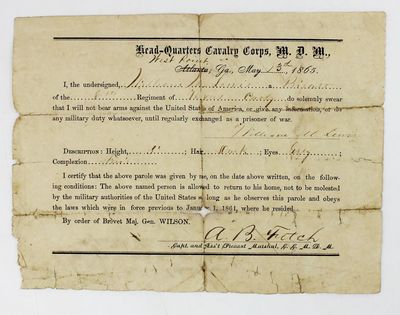 Head-Quarters Cavalry Corps, M. D. M.,
West Point
Atlanta, Ga., May 13th 1865.
I, the undersigned, William
of the Regiment of do solemnly swear
that I will not bear arms against the United States of America, or give any information, or do
any military duty whatsoever, until regularly exchanged as a prisoner of war.
William
DESCRIPTION: Height, ; Hair, ; Eyes, ;
Complexion
I certify that the above parole was given by me, on the date above written, on the follow-
ing conditions: The above named person is allowed to return to his home, not to be molested
by the military authorities of the United States as long as he observes this parole and obeys
the laws which were in force previous to January 1, 1861, where he resided.
By order of Brevet Maj. Gen. WILSON.
A. B. Fitch
Capt. and Ass't Provost Marshal, C. C. M. D. M.